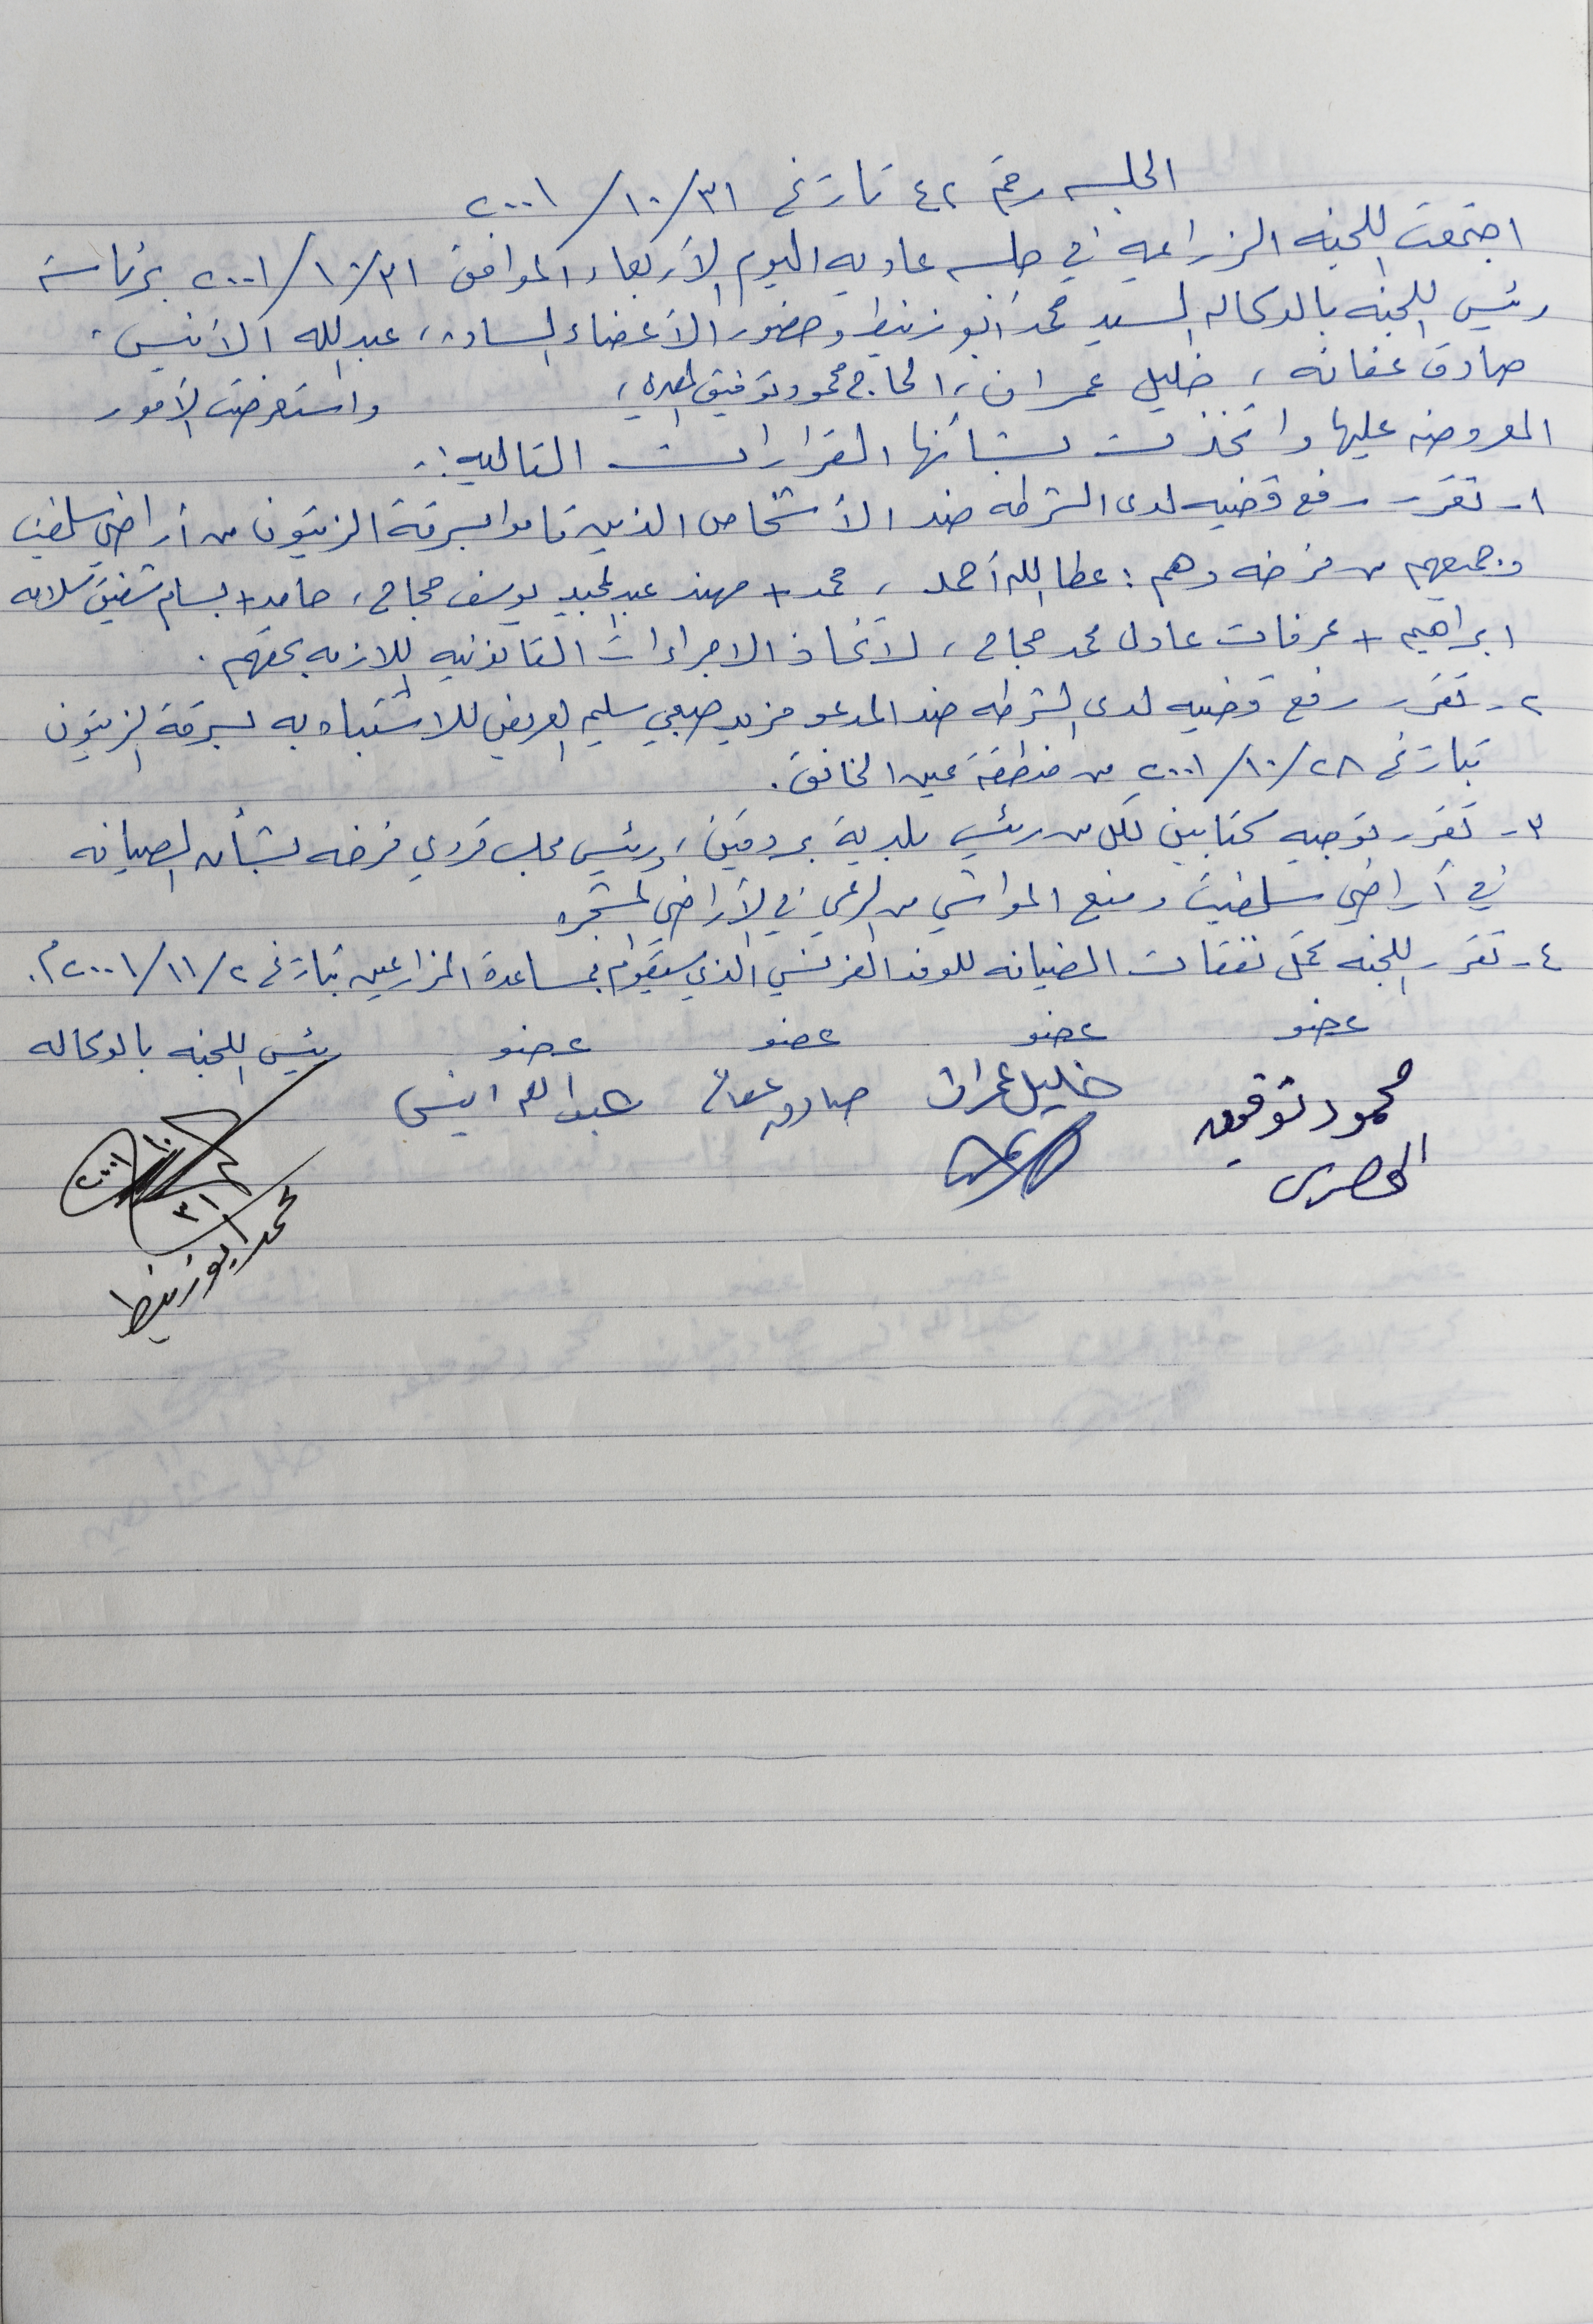 الجلسه رقم ٤٢ تاريخ ٣١/١٠/٢٠٠١
اجتمعت اللجنه الزراعيه في جلسه عاديه اليوم الأربعاء الموافق ٣١/١٠/٢٠٠١ برئاسة
رئيس اللجنه بالوكاله السيد محمد أبو زنيط وحضور الأعضاء الساده، عبد الله الأنيس،
صادق عفانه، خليل عمران، الحاج محمود توفيق المصري، واستعرضت الأمور
المعروضه عليها واتخذت بشأنها القرارات التاليه:-
١- تقرر رفع قضيه لدى الشرطه ضد الأشخاص الذين قاموا بسرقة الزيتون من أراضي سلفيت
وجميعهم من فرخه وهم: عطا الله أحمد، محمد + مهند عبد المجيد يوسف حجاج، حامد + بسام شفيق سلامه
ابراهيم + عرفات عادل محمد حجاج، لاتخاذ الاجراءات القانونيه اللازمه بحقهم.
٢- تقرر رفع قضيه لدى الشرطه ضد المدعو مزيد صبحي سليم العريض للاشتباه به بسرقة الزيتون
بتاريخ ٢٨/١٠/٢٠٠١ من منطقة عين الخانق.
٣- تقرر توجيه كتابين لكل من رئيس بلدية بروقين، ورئيس مجلس قروي فرخه بشأن الصيانه
في أراضي سلفيت ومنع المواشي من الرعي في الأراضي المشجره
٤- تقرر اللجنه تحمل نفقات الضيافه للوفد الفرنسي الذي سيقوم بمساعدة المزارعين بتاريخ ٢/١١/٢٠٠١م.
عضو عضو عضو عضو رئيس اللجنه بالوكاله
محمود توفيق خليل عمران صادق عفانه عبد الله انيس
المصري
٣١/١٠/٢٠٠١
محمد ابو زنيط